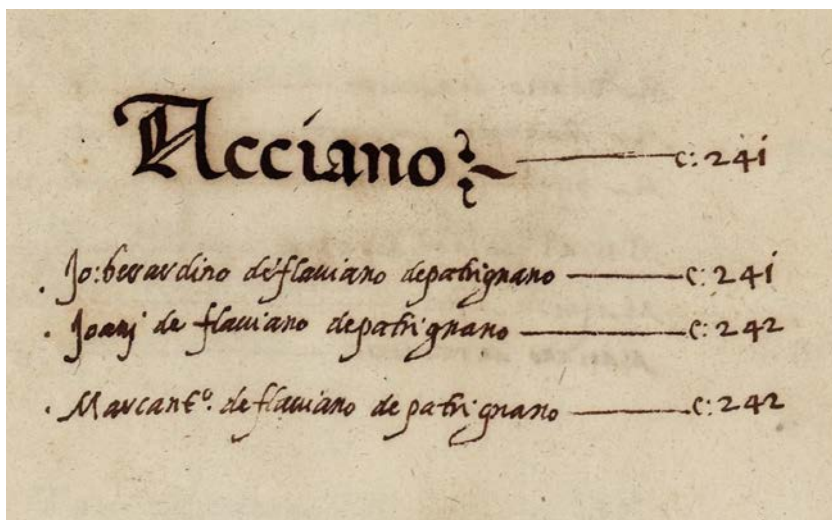 Acciano c: 241
Jo: berardino de flaviano de patrignano c: 241
Joanj de flaviano de patrignano c: 242
Marcant.º de flaviano de patrignano c: 242